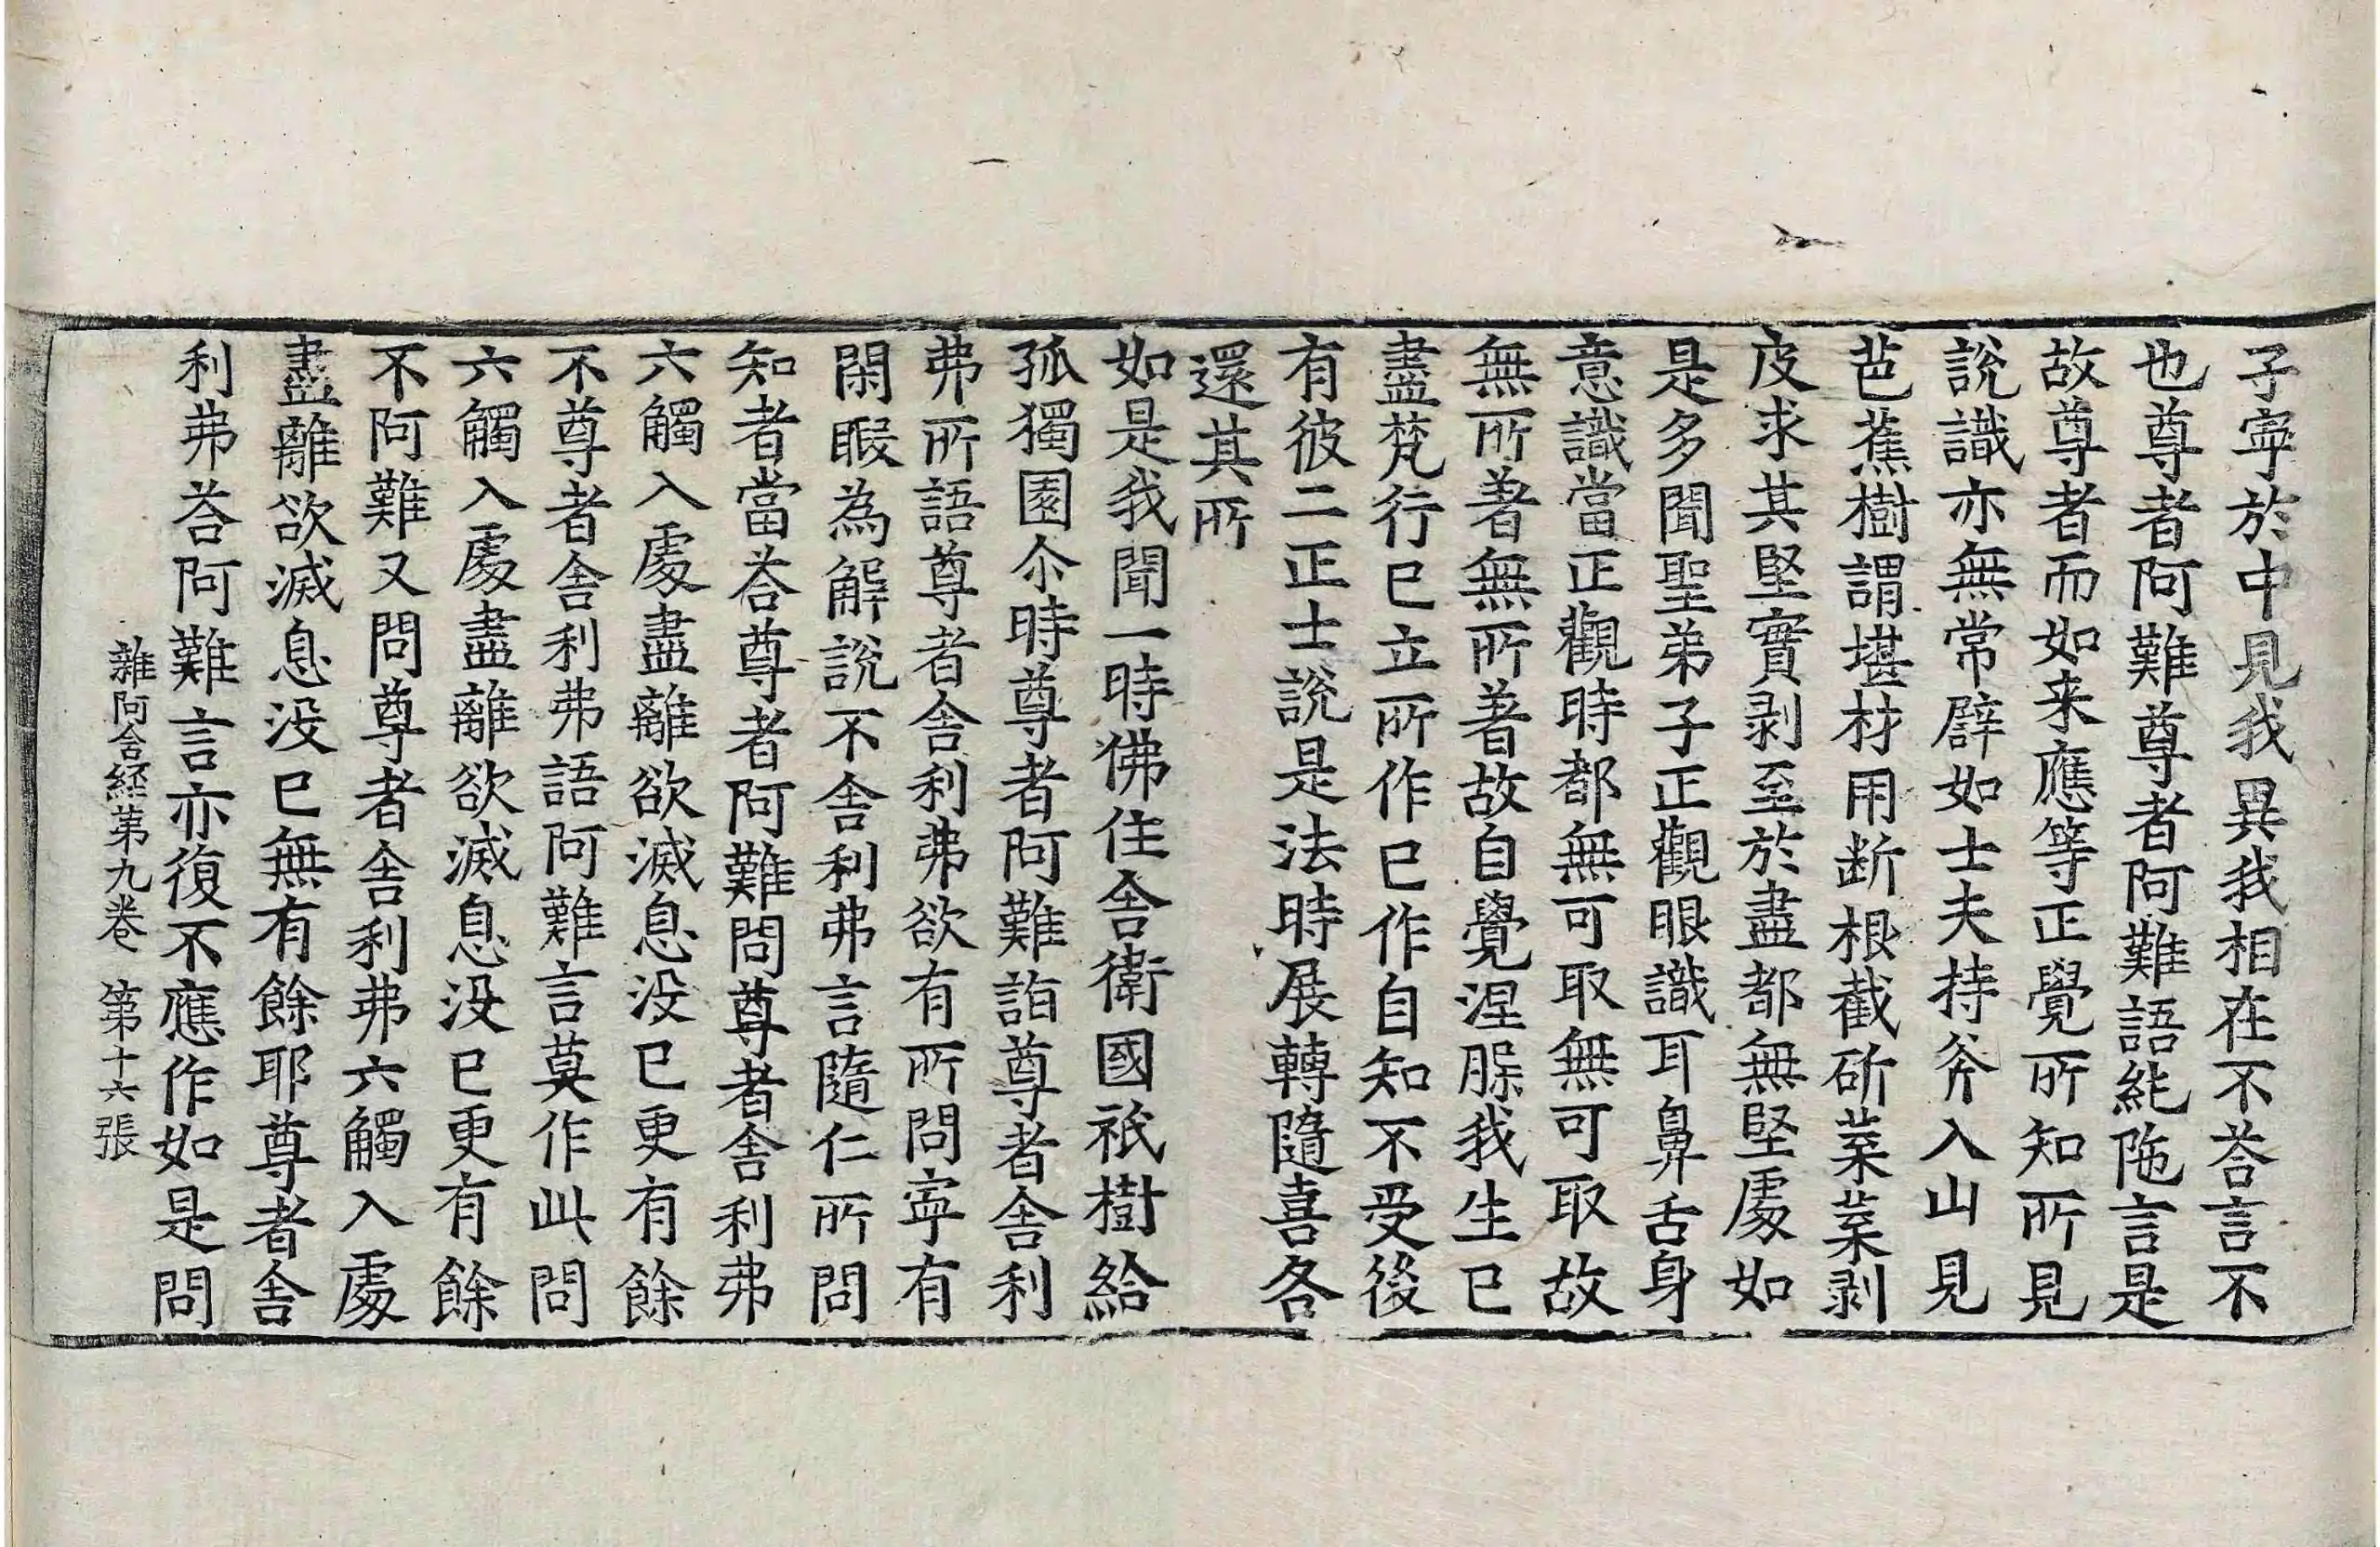 子寧於中見我異我相在不荅言不
也尊者阿難尊者阿難語純陁言是
故尊者而如来應等正覺所知所見
說識亦無常辟如士夫持斧入山見
芭蕉樹謂堪材用断根截斫葉葉剥
皮求其堅實剥至於盡都無堅處如
是多聞聖弟子正觀眼識耳鼻舌身
意識當正觀時都無可取無可取故
無所著無所著故自覺涅脲我生已
盡梵行已立所作已作自知不受後
有彼二正士說是法時展轉隨喜各
還其所
如是我聞一時佛住舍衛國祇樹給
孤獨園尒時尊者阿難詣尊者舍利
弗所語尊者舍利弗欲有所問寧有
閑暇為解說不舍利弗言隨仁所問
知者當荅尊者阿難問尊者舍利弗
六觸入處盡離欲滅息没已更有餘
不尊者舍利弗語阿難言莫作此問
六觸入處盡離欲滅息没已更有餘
不阿難又問尊者舍利弗六觸入處
盡離欲滅息没已無有餘耶尊者舍
利弗荅阿難言亦復不應作如是問
雜阿含経第九卷 第十六張